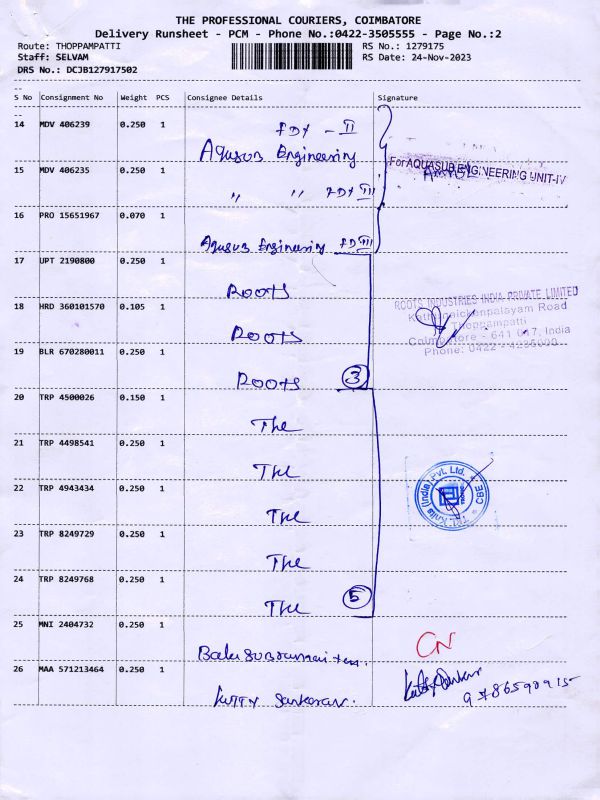 THE PROFESSIONAL COURIERS, COIMBATORE
Delivery Runsheet - PCM - Phone No.:0422-3505555 - Page No.:2
Route: THOPPAMPATTI RS No.: 1279175
Staff: SELVAM RS Date: 24-Nov-2023
DRS No.: DCJB127917502
S No Consignment No Weight PCS Consignee Details Signature
14 MDV 406239 0.250 1
FDY - II
Aquasub Engineering
15 MDV 406235 0.250 1
For AQUASUB ENGINEERING UNIT-IV
" " FDY III
16 PRO 15651967 0.070 1
Aquasub Engineering FD III
17 UPT 2190800 0.250 1
ROOTS
18 HRD 360101570 0.105 1
ROOTS INDUSTRIES INDIA PRIVATE LIMITED
Kathirnaickenpalayam Road
Thoppampatti
Coimbatore - 641 017, India
Phone: 0422 - 4235000
ROOTS
19 BLR 670280011 0.250 1
ROOTS 3
20 TRP 4500026 0.150 1
The
21 TRP 4498541 0.250 1
The
22 TRP 4943434 0.250 1
(India) Pvt. Ltd. CBE
The
23 TRP 8249729 0.250 1
The
24 TRP 8249768 0.250 1
The 5
25 MNI 2404732 0.250 1
CN
26 MAA 571213464 0.250 1
Kutty Sankaran.